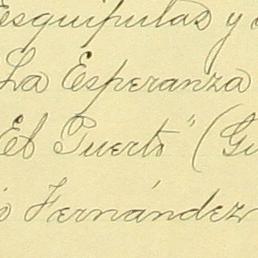 Esquipulas y
La Esperanza
El Puerto" (
Fernández